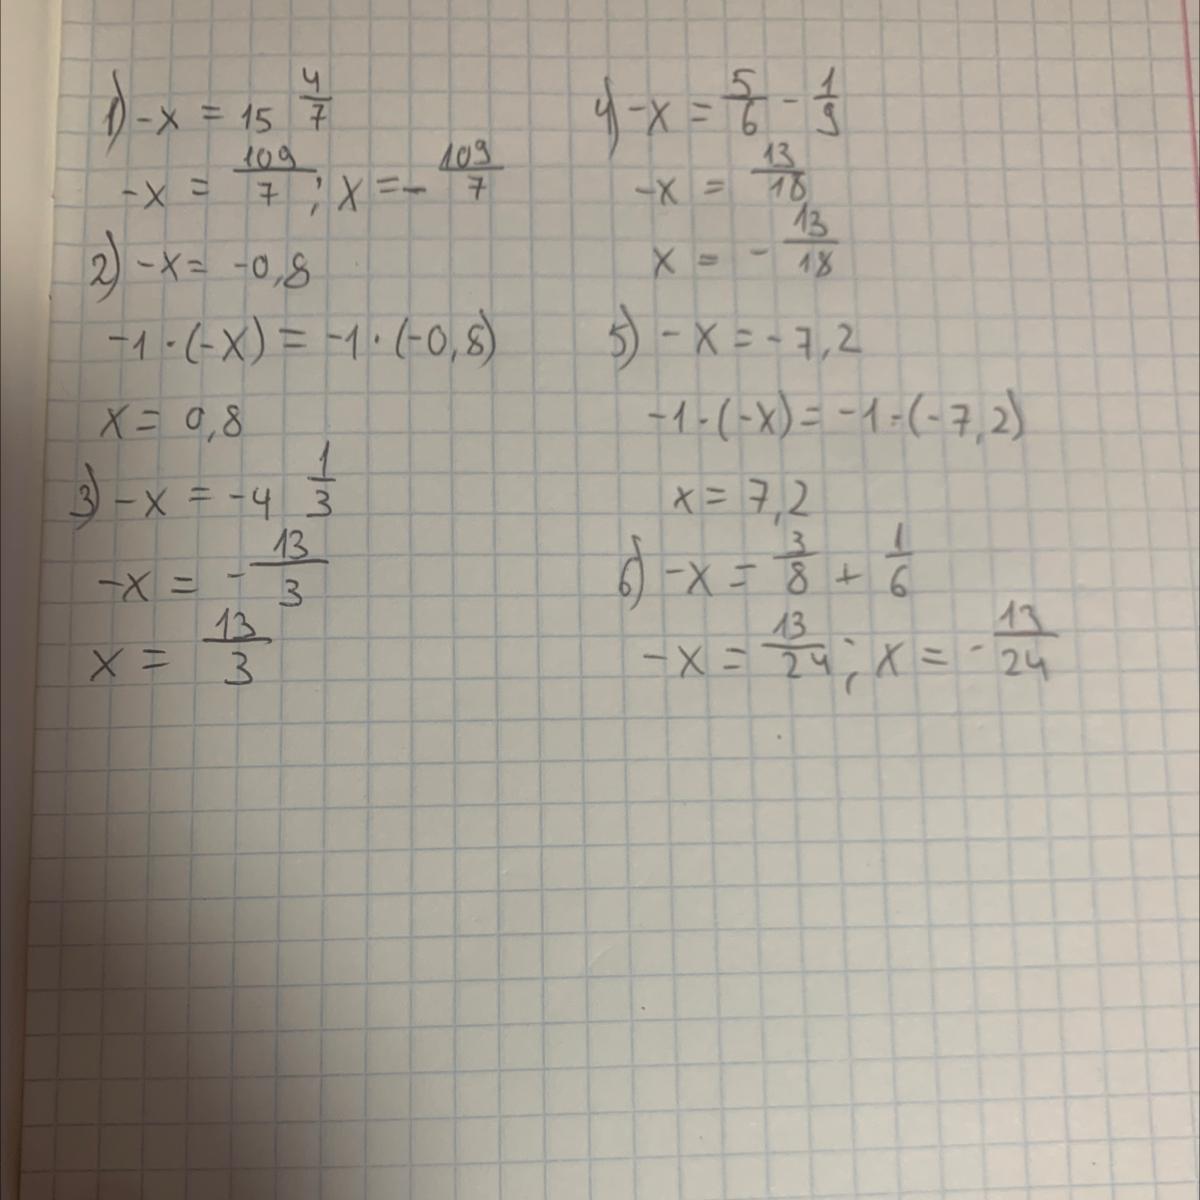 1) -x = 15 4/7
-x = 109/7 ; x = - 109/7
2) -x = -0,8
-1·(-x) = -1·(-0,8)
x = 0,8
3) -x = -4 1/3
-x = - 13/3
x = 13/3
4) -x = 5/6 - 1/9
-x = 13/18
x = - 13/18
5) -x = -7,2
-1·(-x) = -1·(-7,2)
x = 7,2
6) -x = 3/8 + 1/6
-x = 13/24 ; x = - 13/24